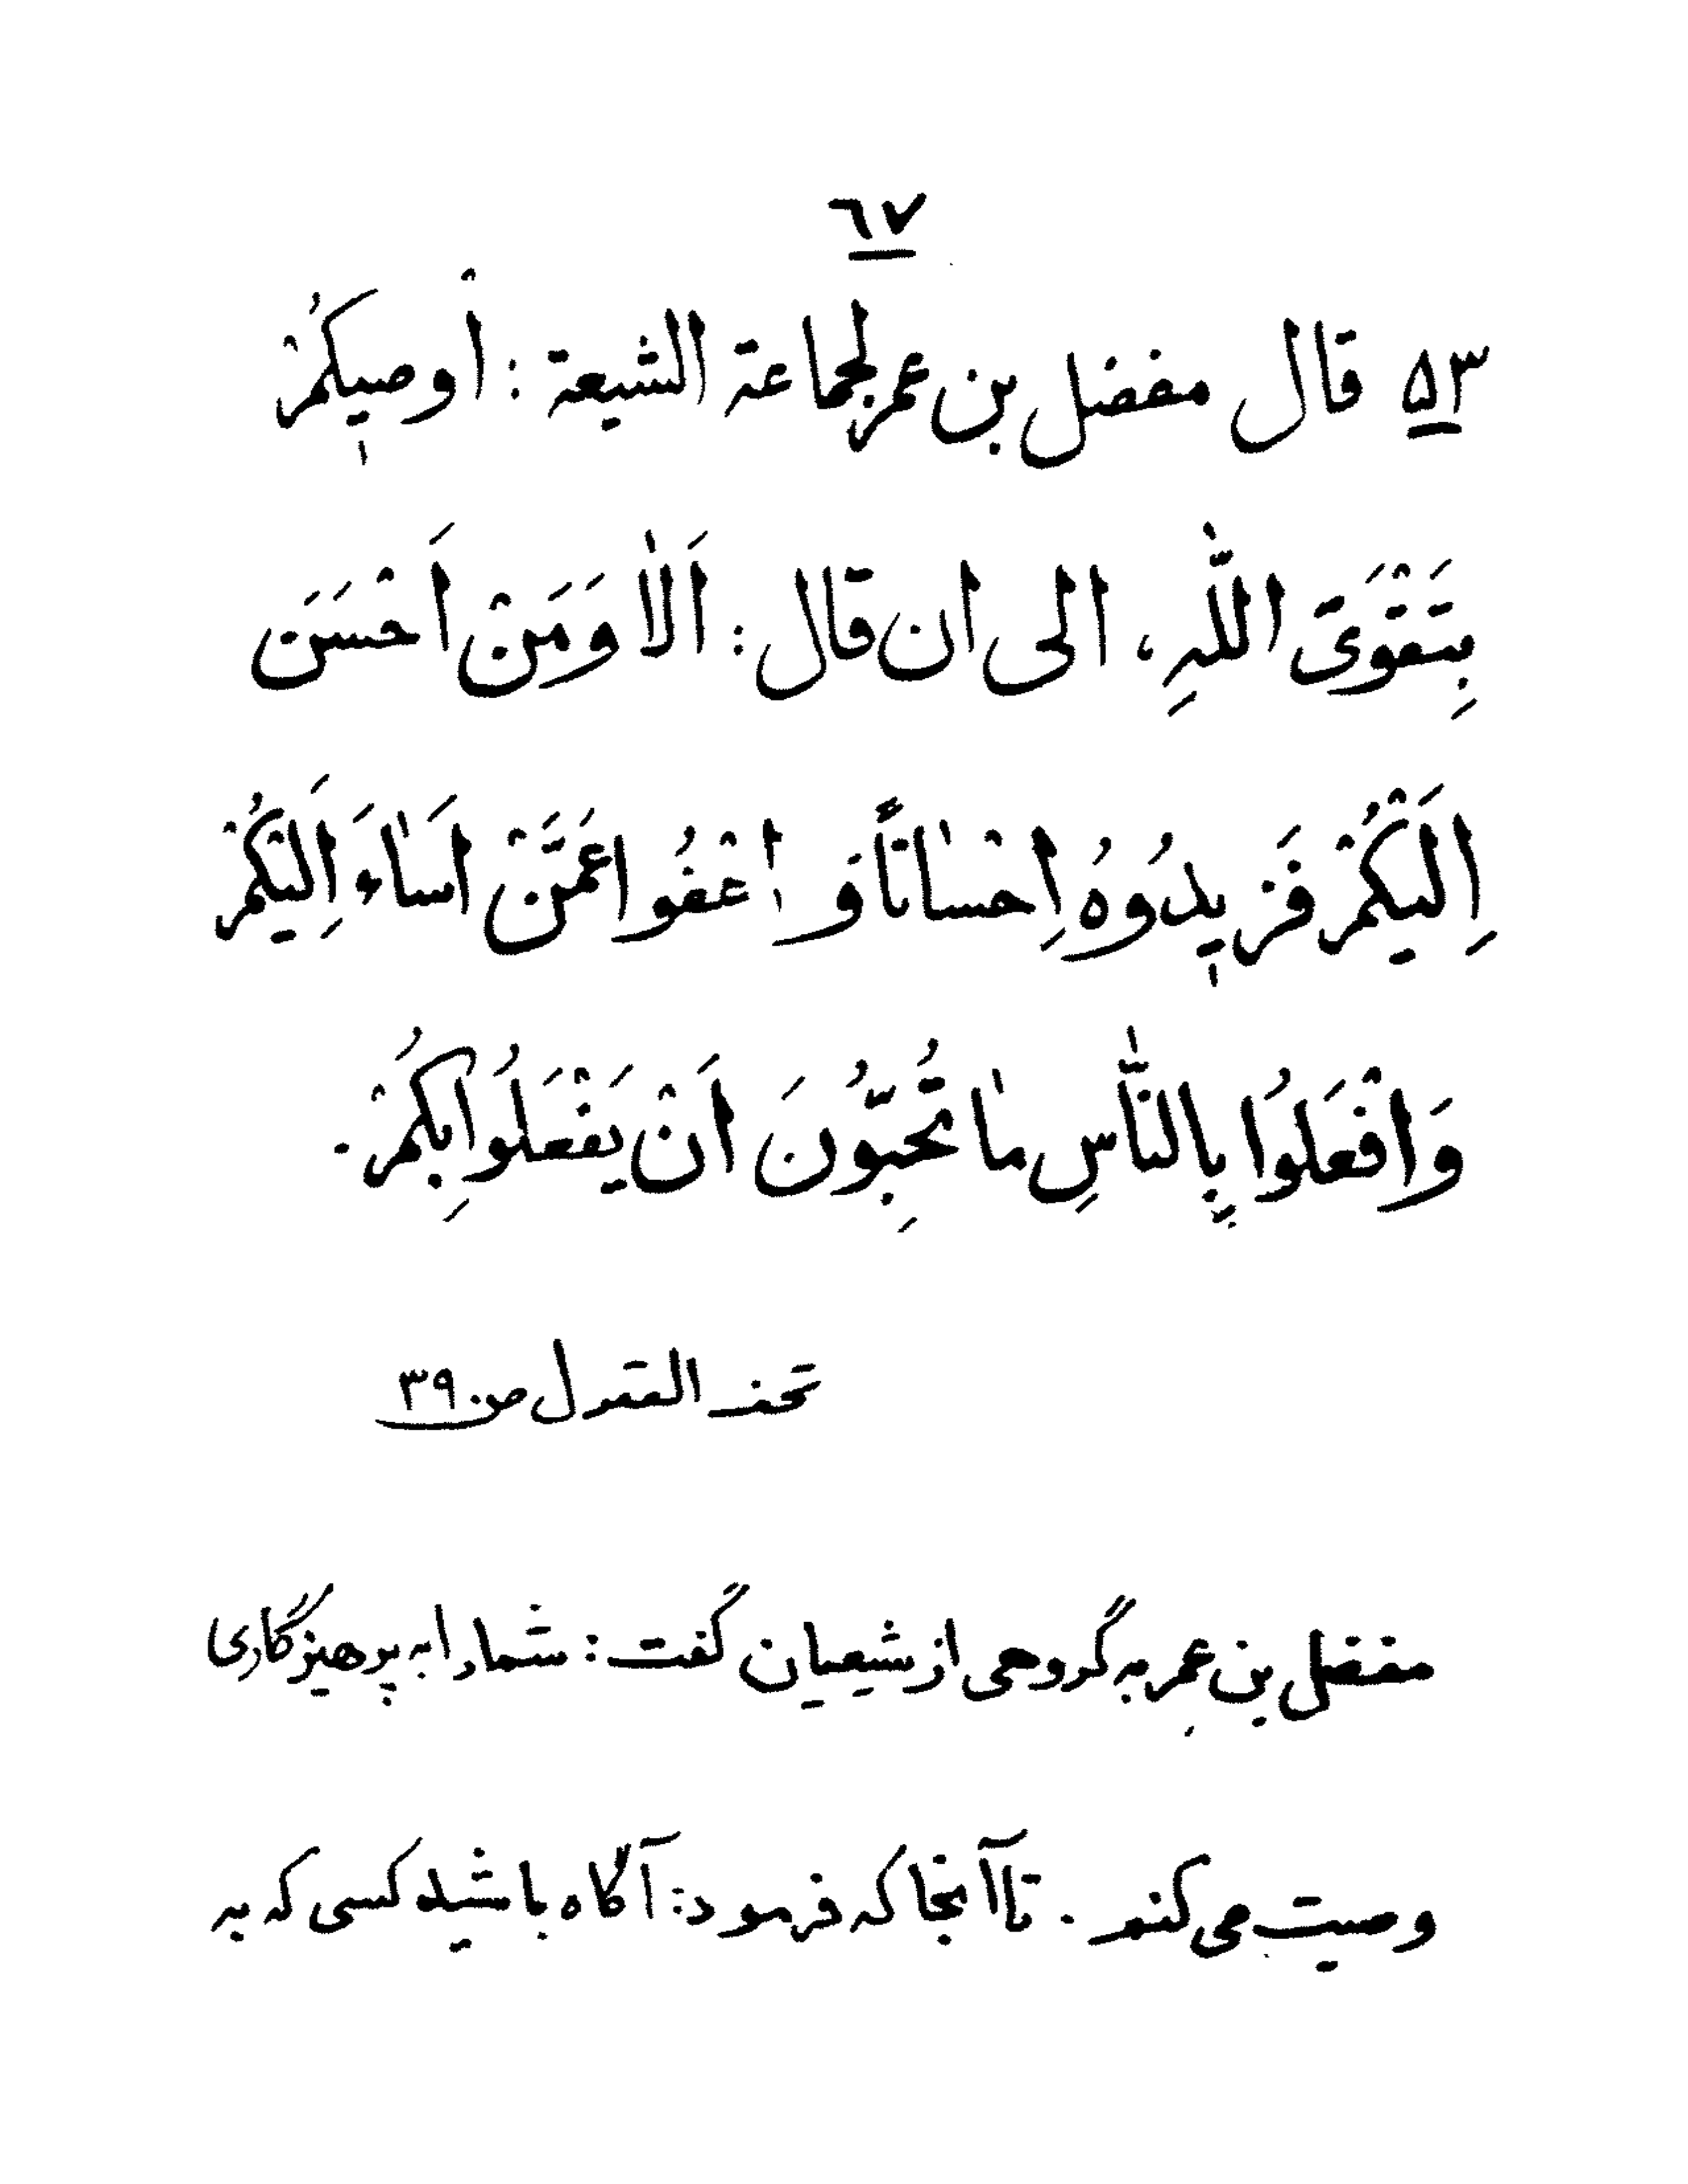 ٦٧
٥٣ قال مفضل بن عمر لجماعة الشيعة : اُوصيكُمْ
بِتَقْوَى اللّٰهِ، الى ان قال : اَلاٰ وَ مَنْ اَحْسَنَ
اِلَيْكُمْ فَزيدُوهُ اِحْسٰاناً وَ اعْفُوا عَمَّنْ اَسٰاءَ اِلَيْكُمْ
وَ افْعَلُوا بِالنّٰاسِ مٰا تُحِبُّونَ اَنْ يَفْعَلُوا بِكُمْ .
تحف العقول ص ٣٩
مفضل بن عمر به گروهی از شیعیان گفت : شما را به پرهیزگاری
وصیت می کنم . تا آنجا که فرمود : آگاه باشید کسی که به